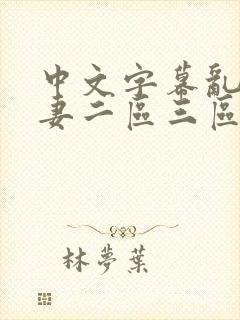 中文字幕亂
妻二區三區
林夢葉